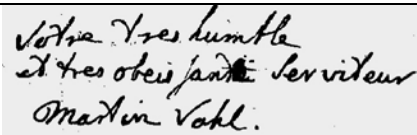 votre tres humble
et tres obeissante serviteur
Martin Vahl.